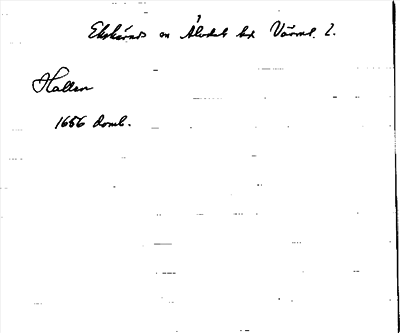 Ekshärads sn Älvdals hd Värml. l.
Hallen
1656 domb.